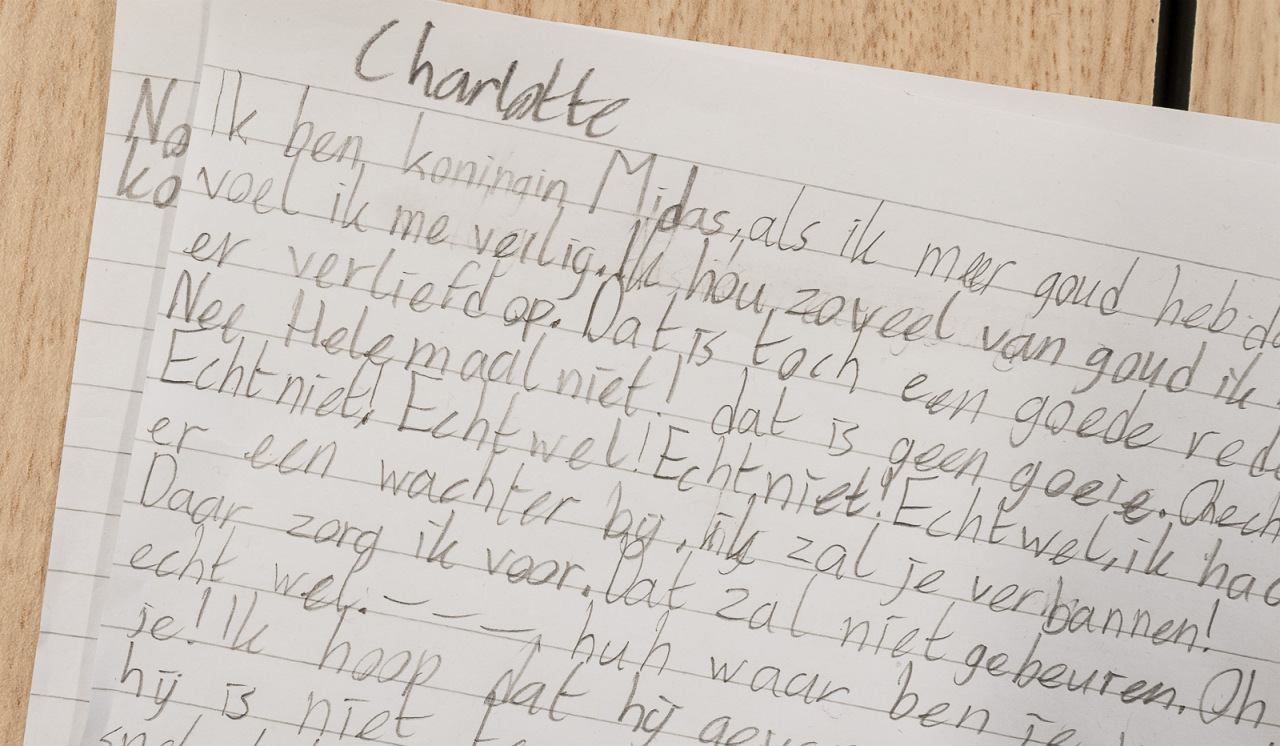 Charlotte
No
ko
Ik ben koningin Midas, als ik meer goud heb
voel ik me veilig. Ik hou zoveel van goud ik
er verliefd op. Dat is toch een goede
Nee Helemaal niet! dat is geen goeie.
Echt niet! Echt wel! Echt niet! Echt wel, ik
er een wachter bij, ik zal je verbannen!
Daar zorg ik voor. Dat zal niet gebeuren. Oh
echt wel. ‒ ‒ ‒, huh waar ben je
je! Ik hoop dat hij
hij is niet